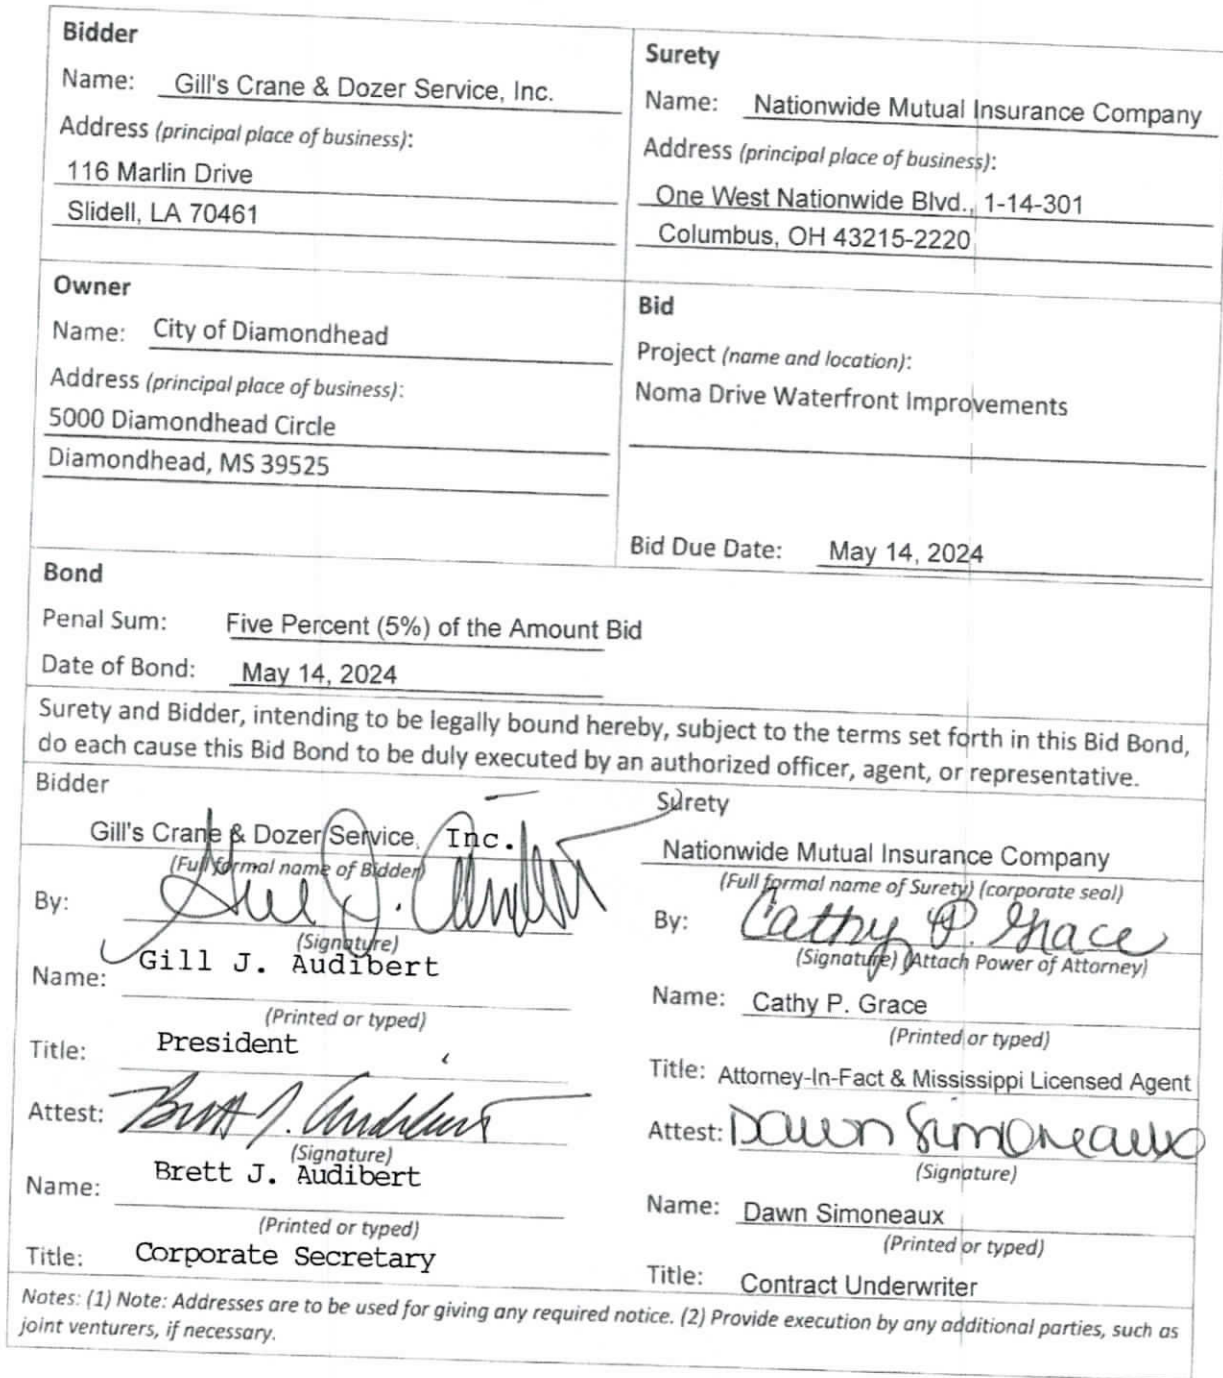 Bidder
Name: Gill's Crane & Dozer Service, Inc.
Address (principal place of business):
116 Marlin Drive
Slidell, LA 70461
Surety
Name: Nationwide Mutual Insurance Company
Address (principal place of business):
One West Nationwide Blvd., 1-14-301
Columbus, OH 43215-2220
Owner
Name: City of Diamondhead
Address (principal place of business):
5000 Diamondhead Circle
Diamondhead, MS 39525
Bid
Project (name and location):
Noma Drive Waterfront Improvements
Bid Due Date: May 14, 2024
Bond
Penal Sum: Five Percent (5%) of the Amount Bid
Date of Bond: May 14, 2024
Surety and Bidder, intending to be legally bound hereby, subject to the terms set forth in this Bid Bond,
do each cause this Bid Bond to be duly executed by an authorized officer, agent, or representative.
Bidder
Gill's Crane & Dozer Service, Inc.
(Full formal name of Bidder)
By: Gill J. Audibert
(Signature)
Name: Gill J. Audibert
(Printed or typed)
Title: President
Attest: Brett J. Audibert
(Signature)
Name: Brett J. Audibert
(Printed or typed)
Title: Corporate Secretary
Surety
Nationwide Mutual Insurance Company
(Full formal name of Surety) (corporate seal)
By: Cathy P. Grace
(Signature) (Attach Power of Attorney)
Name: Cathy P. Grace
(Printed or typed)
Title: Attorney-In-Fact & Mississippi Licensed Agent
Attest: Dawn Simoneaux
(Signature)
Name: Dawn Simoneaux
(Printed or typed)
Title: Contract Underwriter
Notes: (1) Note: Addresses are to be used for giving any required notice. (2) Provide execution by any additional parties, such as
joint venturers, if necessary.